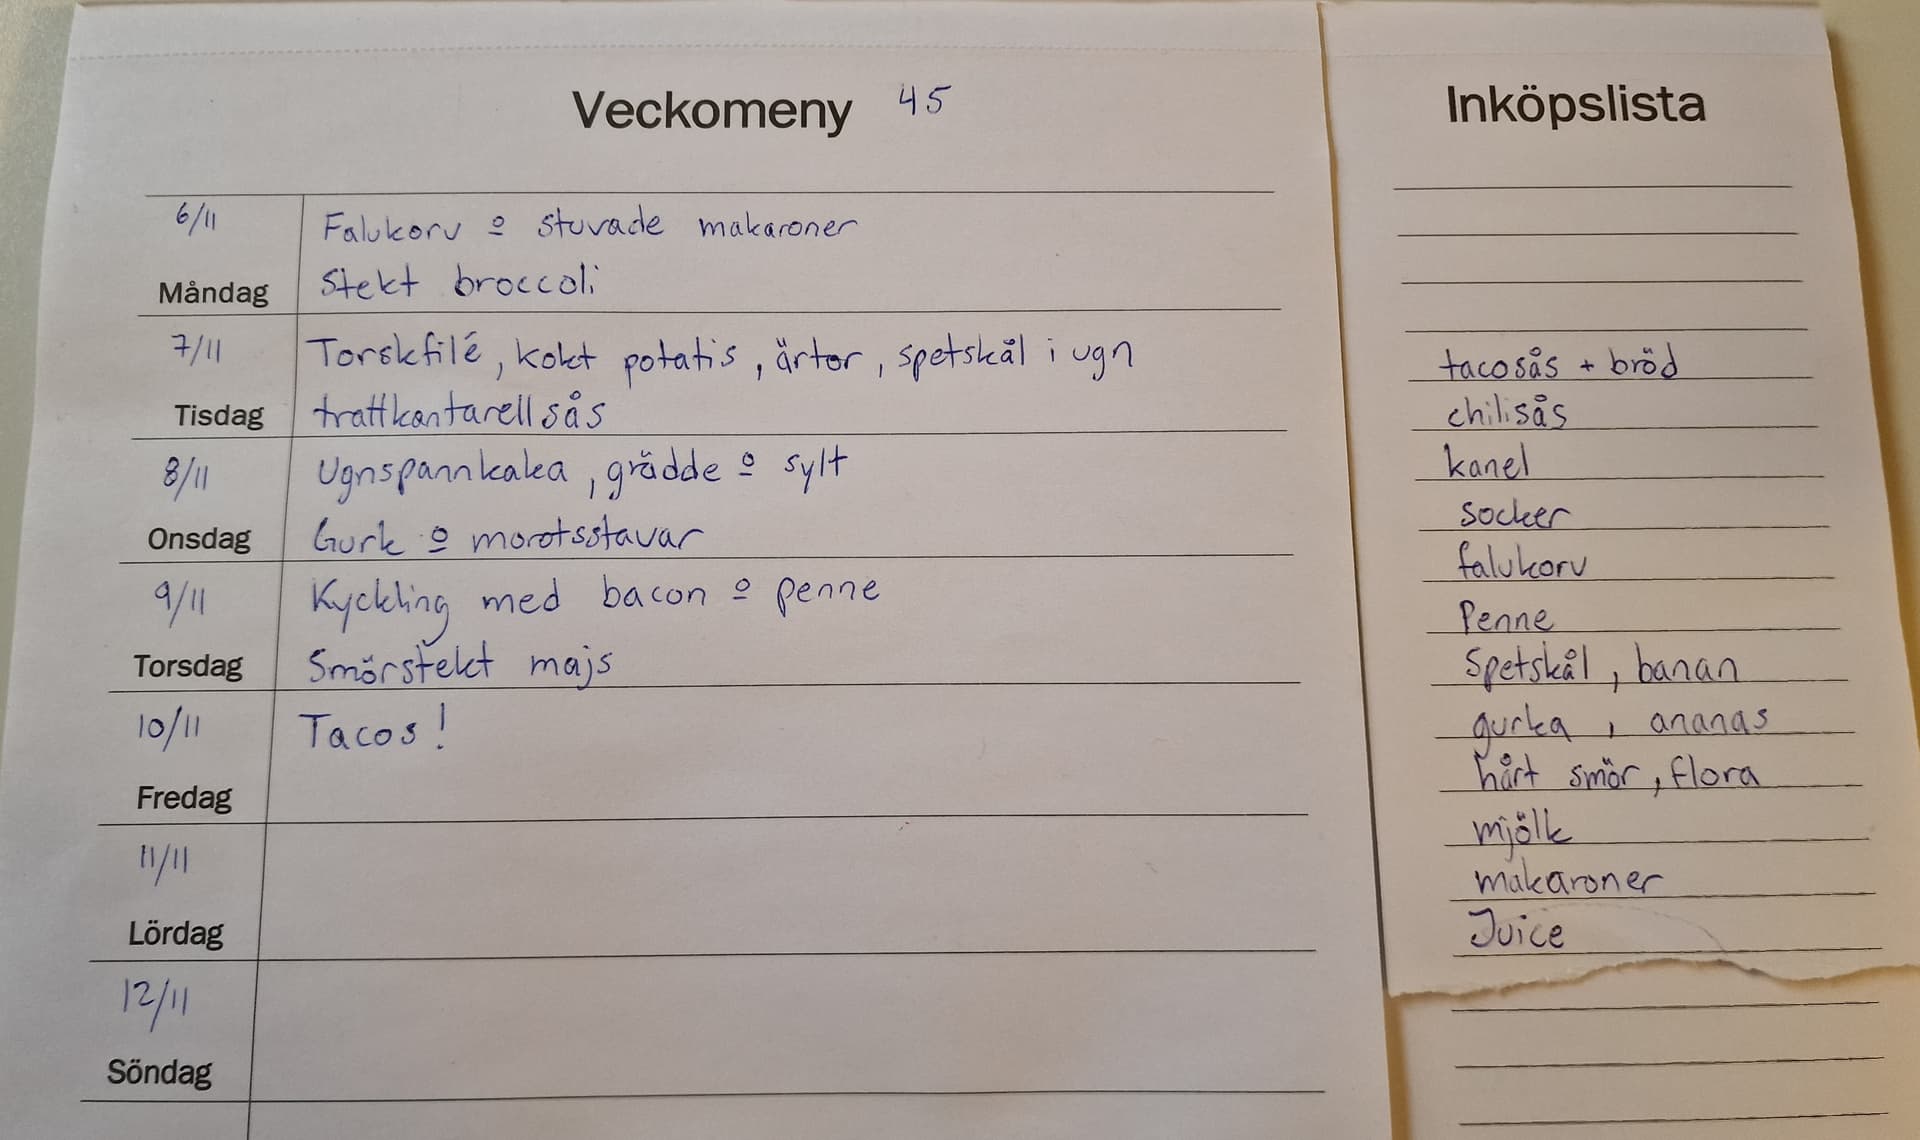 Veckomeny 45
6/11
Måndag
Falukorv o stuvade makaroner
Stekt broccoli
7/11
Tisdag
Torskfilé, kokt potatis, ärtor, spetskål i ugn
trattkantarellsås
8/11
Onsdag
Ugnspannkaka, grädde o sylt
Gurk o morotsstavar
9/11
Torsdag
Kyckling med bacon o penne
Smörstekt majs
10/11
Fredag
Tacos!
11/11
Lördag
12/11
Söndag
Inköpslista
tacosås + bröd
chilisås
kanel
socker
falukorv
Penne
Spetskål, banan
gurka, ananas
hårt smör, flora
mjölk
makaroner
Juice